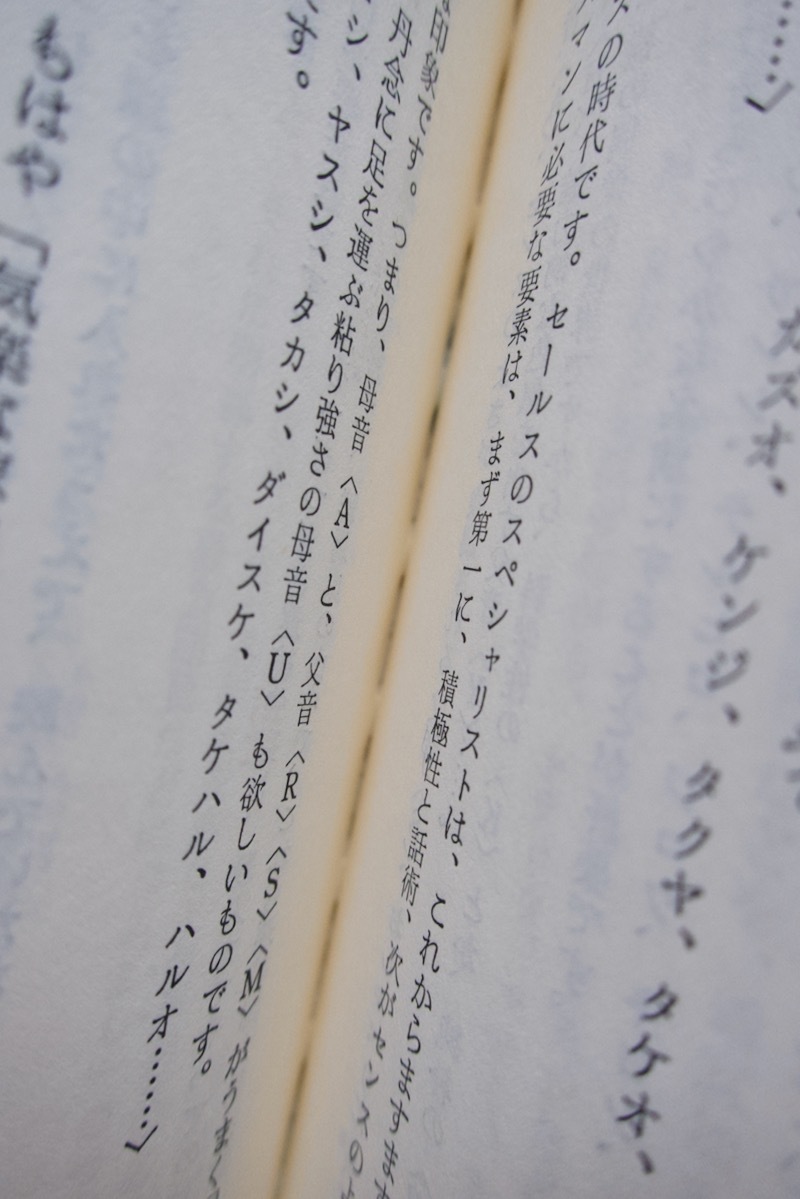 カズオ、ケンジ、タクヤ、タケオ、
……」
スの時代です。セールスのスペシャリストは、これからますます
マンに必要な要素は、まず第一に、積極性と話術、次がセンスの
印象です。つまり、母音〈A〉と、父音〈R〉〈S〉〈M〉がうまく
丹念に足を運ぶ粘り強さの母音〈U〉も欲しいものです。
シ、ヤスシ、タカシ、ダイスケ、タケハル、ハルオ……」
す。
もはや「気